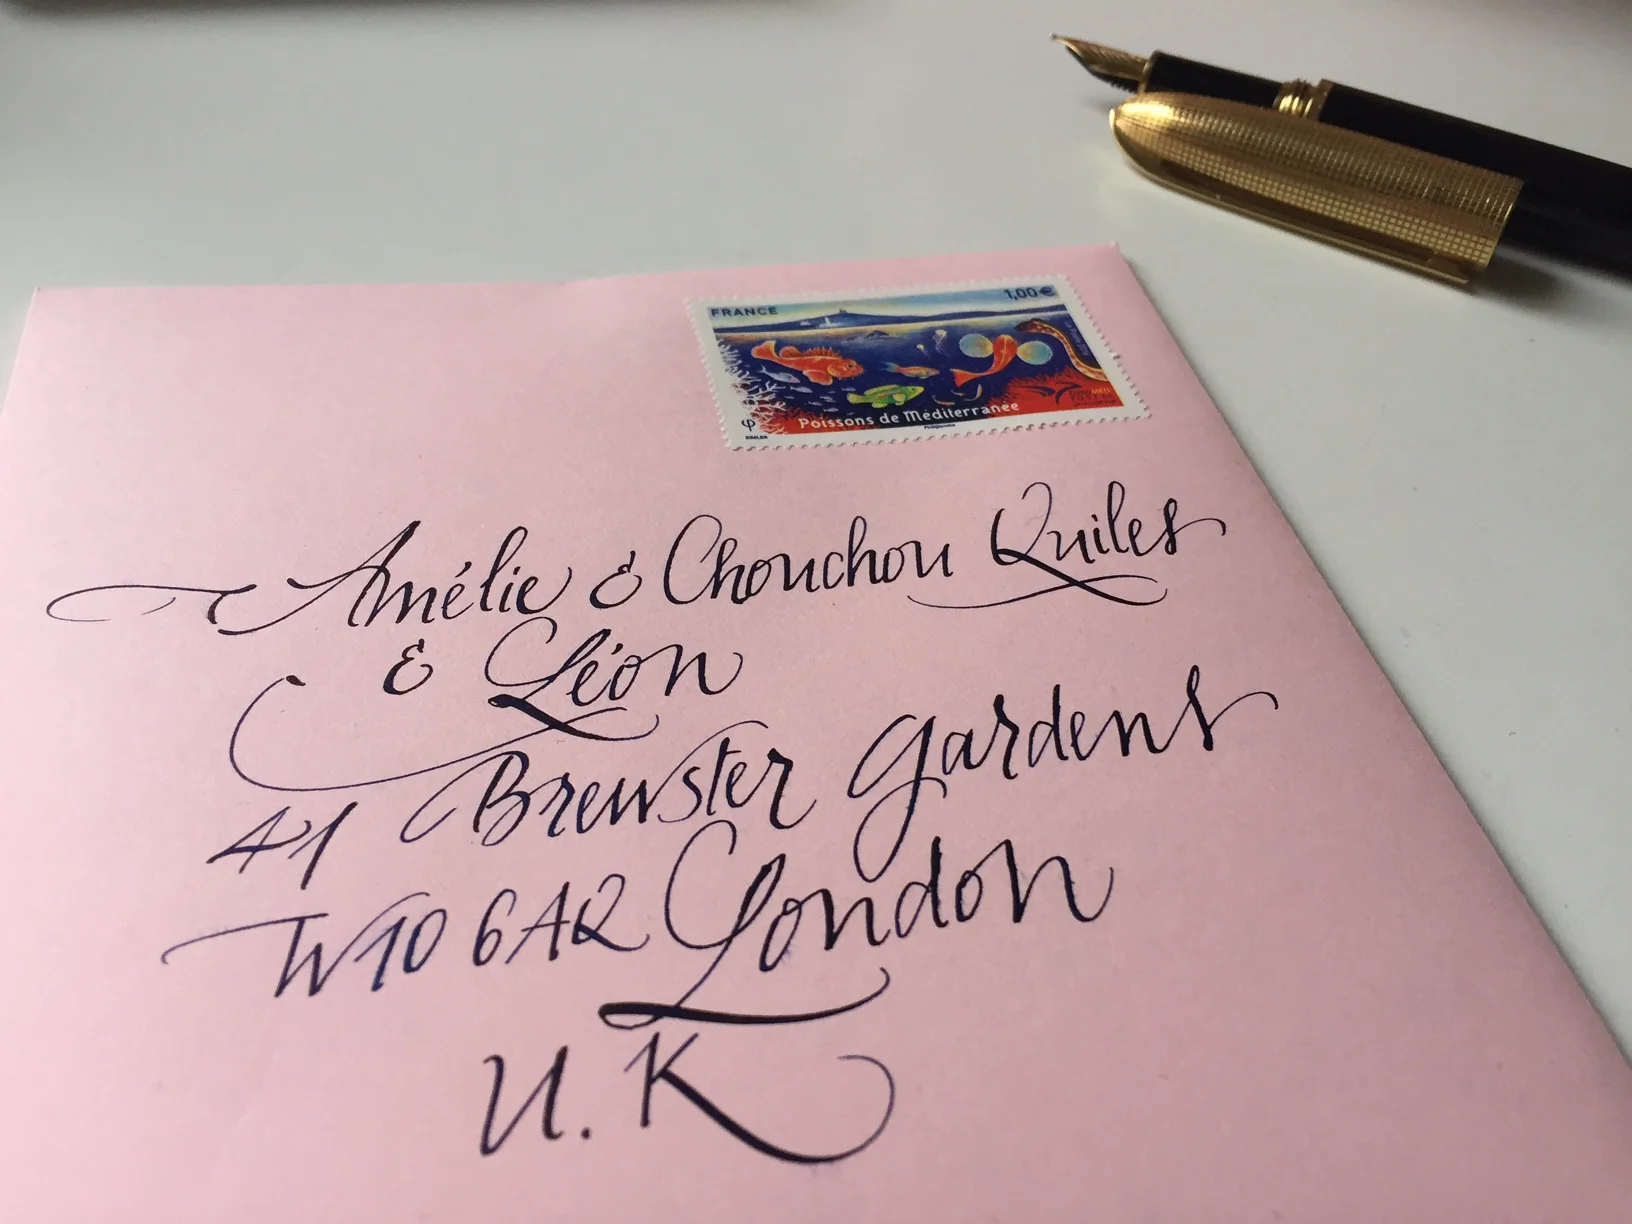 FRANCE 1,00€
Poissons de Méditerranée
Amélie & Chouchou Quiles
& Léon
41 Brewster Gardens
W10 6AQ London
U.K